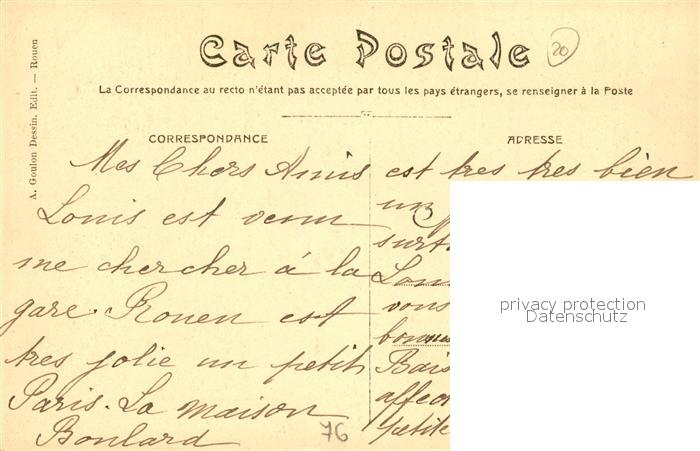 Carte Postale
20
La Correspondance au recto n'étant pas acceptée par tous les pays étrangers, se renseigner à la Poste
A. Goulon Dessin. Edit. — Rouen
CORRESPONDANCE
Mes Chers Amis
Louis est venu
me chercher à la
gare. Rouen est
tres jolie un petit
Paris. La maison
Boulard
76
ADRESSE
est tres tres bien
un
surt
Lou
vous
bonnes
Bais
affec
petite
privacy protection
Datenschutz